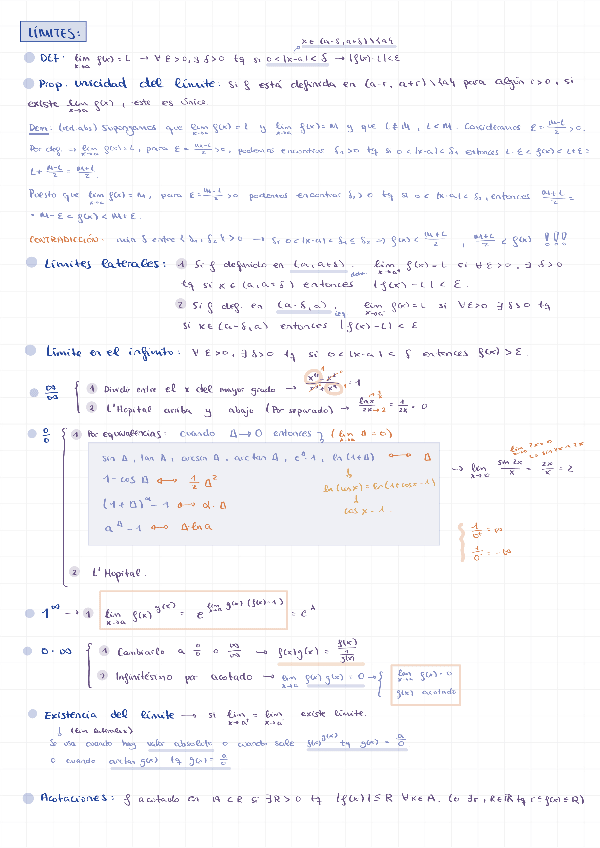 LÍMITES:
x ∈ (a-δ, a+δ) \ {a}
DEF: lim x→a f(x) = L → ∀ε>0, ∃ δ>0 tq si 0<|x-a|<δ → |f(x)-L|<ε
Prop. unicidad del límite: Si f está definida en (a-r, a+r)\{a} para algún r>0, si
existe lim x→a f(x), este es único.
Dem. (red.abs) Supongamos que lim x→a f(x) = L y lim x→a f(x) = M y que L≠M, L<M. Consideramos ε = (M-L)/2 > 0.
Por def → lim x→a f(x) = L, para ε = (M-L)/2 > 0, podemos encontrar δ₁>0 tq si 0<|x-a|<δ₁ entonces L-ε<f(x)<L+ε =
L + (M-L)/2 = (M+L)/2.
Puesto que lim x→a f(x) = M, para ε = (M-L)/2 > 0 podemos encontrar δ₂>0 tq si 0<|x-a|<δ₂, entonces (M+L)/2 =
= M-ε < f(x) < M+ε.
CONTRADICCIÓN: min δ entre {δ₁, δ₂} > 0 → si 0<|x-a|<δ₁≤δ₂ ⇒ f(x) < (M+L)/2, (M+L)/2 < f(x) !!!
Límites laterales: 1 Si f definido en (a, a+δ). lim x→a⁺ f(x) = L si ∀ε>0, ∃ δ>0
tq si x ∈ (a, a+δ) entonces |f(x)-L| < ε.
2 Si f def. en (a-δ, a). izq lim x→a⁻ f(x) = L si ∀ε>0 ∃ δ>0 tq
si x ∈ (a-δ, a) entonces |f(x)-L| < ε
Límite en el infinito: ∀ε>0, ∃ δ>0 tq si 0<|x-a|<δ entonces f(x)>ε.
∞/∞ 1 Dividir entre el x del mayor grado →
2 L'Hopital arriba y abajo (Por separado) → ln x / 2x = 1 / 2x = 0
0/0 1 Por equivalencias: cuando Δ→0 entonces (lim x→a Δ = 0)
sin Δ, tan Δ, arcsin Δ, arctan Δ, e^Δ-1, ln(1+Δ) ↔ Δ
1-cos Δ ↔ 1/2 Δ²
ln(cos x) = ln(1+cos x-1)
(1+Δ)^α - 1 ↔ α·Δ
cos x - 1
a^Δ - 1 ↔ Δ ln a
→ lim x→0 sin 2x / x = 2x / x = 2
1/0⁺ = ∞
1/0⁻ = -∞
2 L'Hopital.
1^∞ → 1 lim x→a f(x)^g(x) = e^(lim x→a g(x)·(f(x)-1)) = e^λ
0·∞ 1 Cambiarlo a 0/0 o ∞/∞ → f(x)g(x) = f(x) / (1/g(x))
2 Infinitésimo por acotado → lim x→a f(x)g(x) = 0 → { lim x→a f(x) = 0
g(x) acotado
Existencia del límite → si lim x→a⁺ = lim x→a⁻ existe límite.
(lim laterales)
Se usa cuando hay valor absoluto o cuando sale f(x)^g(x) tq g(x) = a/0
o cuando arctan g(x) tq g(x) = a/0
Acotaciones: f acotado en A ⊂ R si ∃R>0 tq |f(x)| ≤ R ∀x∈A. (o ∃r, R∈ℝ tq r≤f(x)≤R)